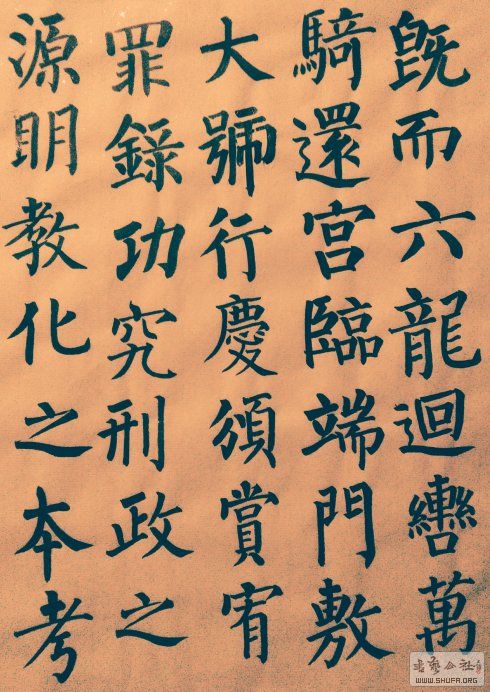 既而六龍迴轡萬
騎還宮臨端門敷
大號行慶頒賞宥
罪錄功究刑政之
源明教化之本考
书艺公社
WWW.SHUFA.ORG